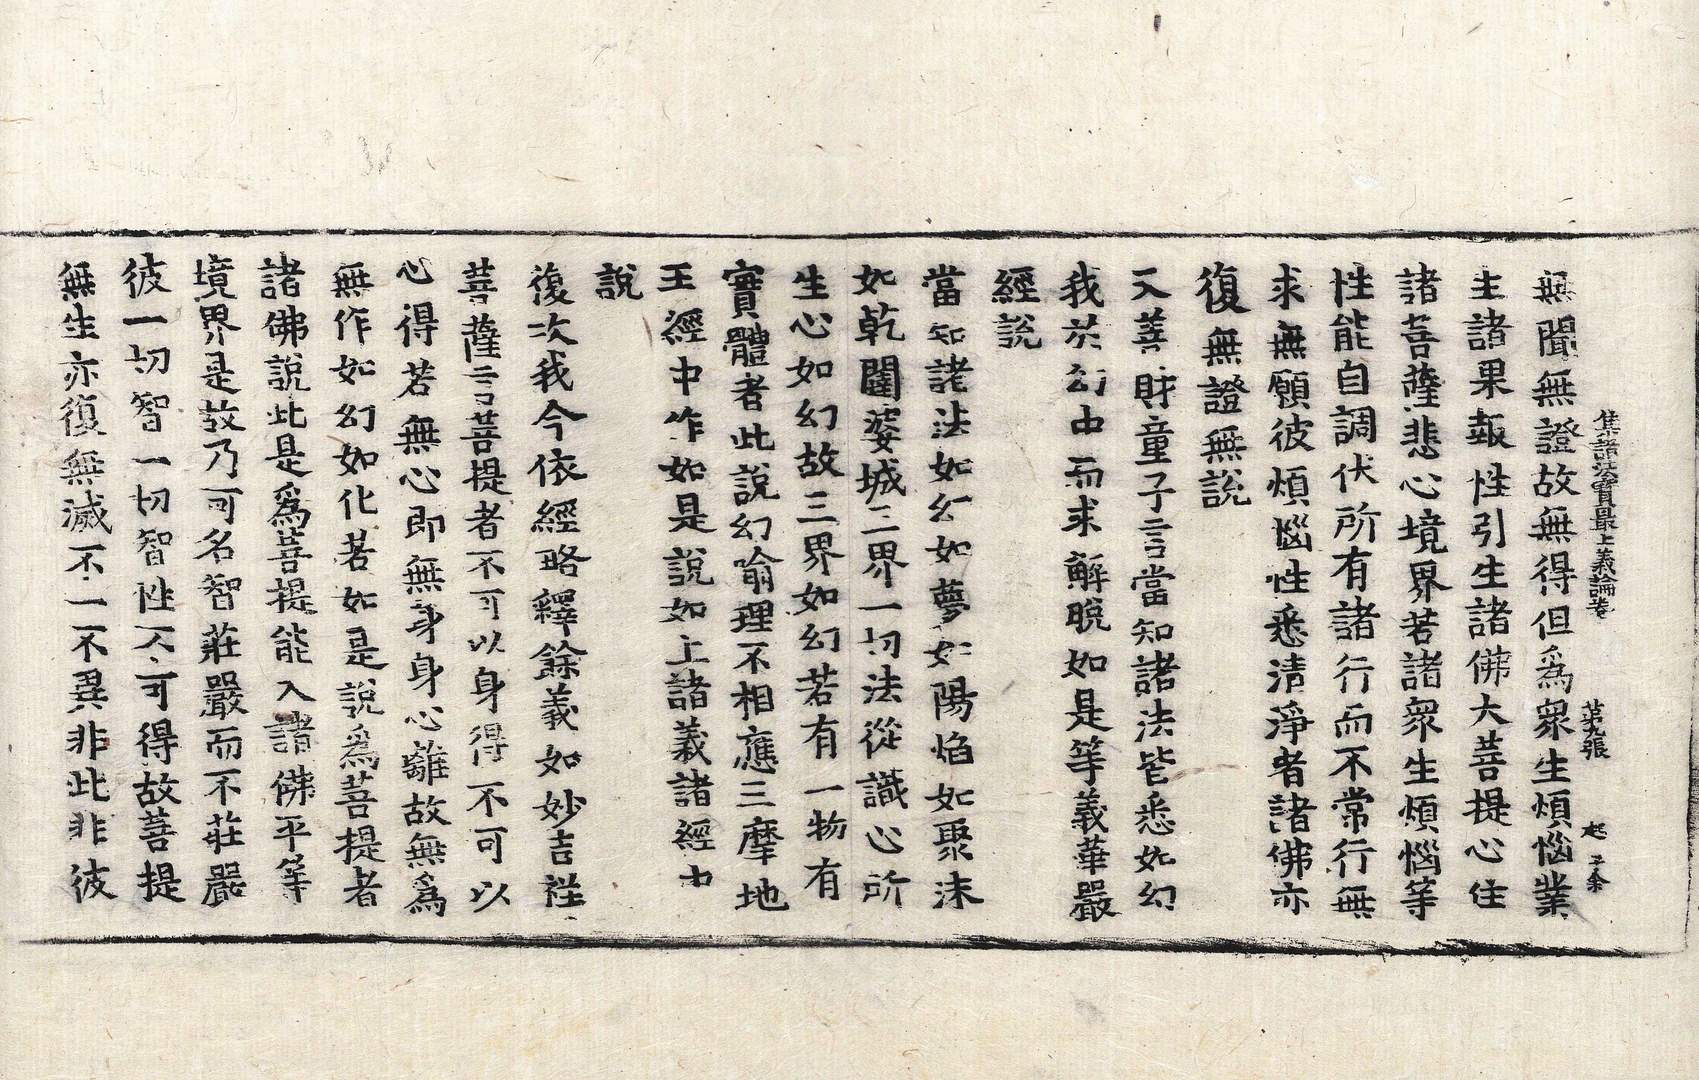 集諸法寶最上義論卷　第九張　起
無聞無證故無得但為衆生煩惱業
生諸果報性引生諸佛大菩提心住
諸菩薩悲心境界若諸衆生煩惱等
性能自調伏所有諸行而不常行無
求無願彼煩惱性悉清淨者諸佛亦
復無證無說
又善財童子言當知諸法皆悉如幻
我於幻中而求解脫如是等義華嚴
經說
當知諸法如幻如夢如陽焰如聚沫
如乾闥婆城三界一切法從識心所
生心如幻故三界如幻若有一物有
實體者此說幻喻理不相應三摩地
王經中作如是說如上諸義諸經中
說
復次我今依經略釋餘義如妙吉祥
菩薩言菩提者不可以身得不可以
心得若無心即無身身心離故無為
無作如幻如化若如是說為菩提者
諸佛說此是為菩提能入諸佛平等
境界是故乃可名智莊嚴而不莊嚴
彼一切智一切智性不可得故菩提
無生亦復無滅不一不異非此非彼